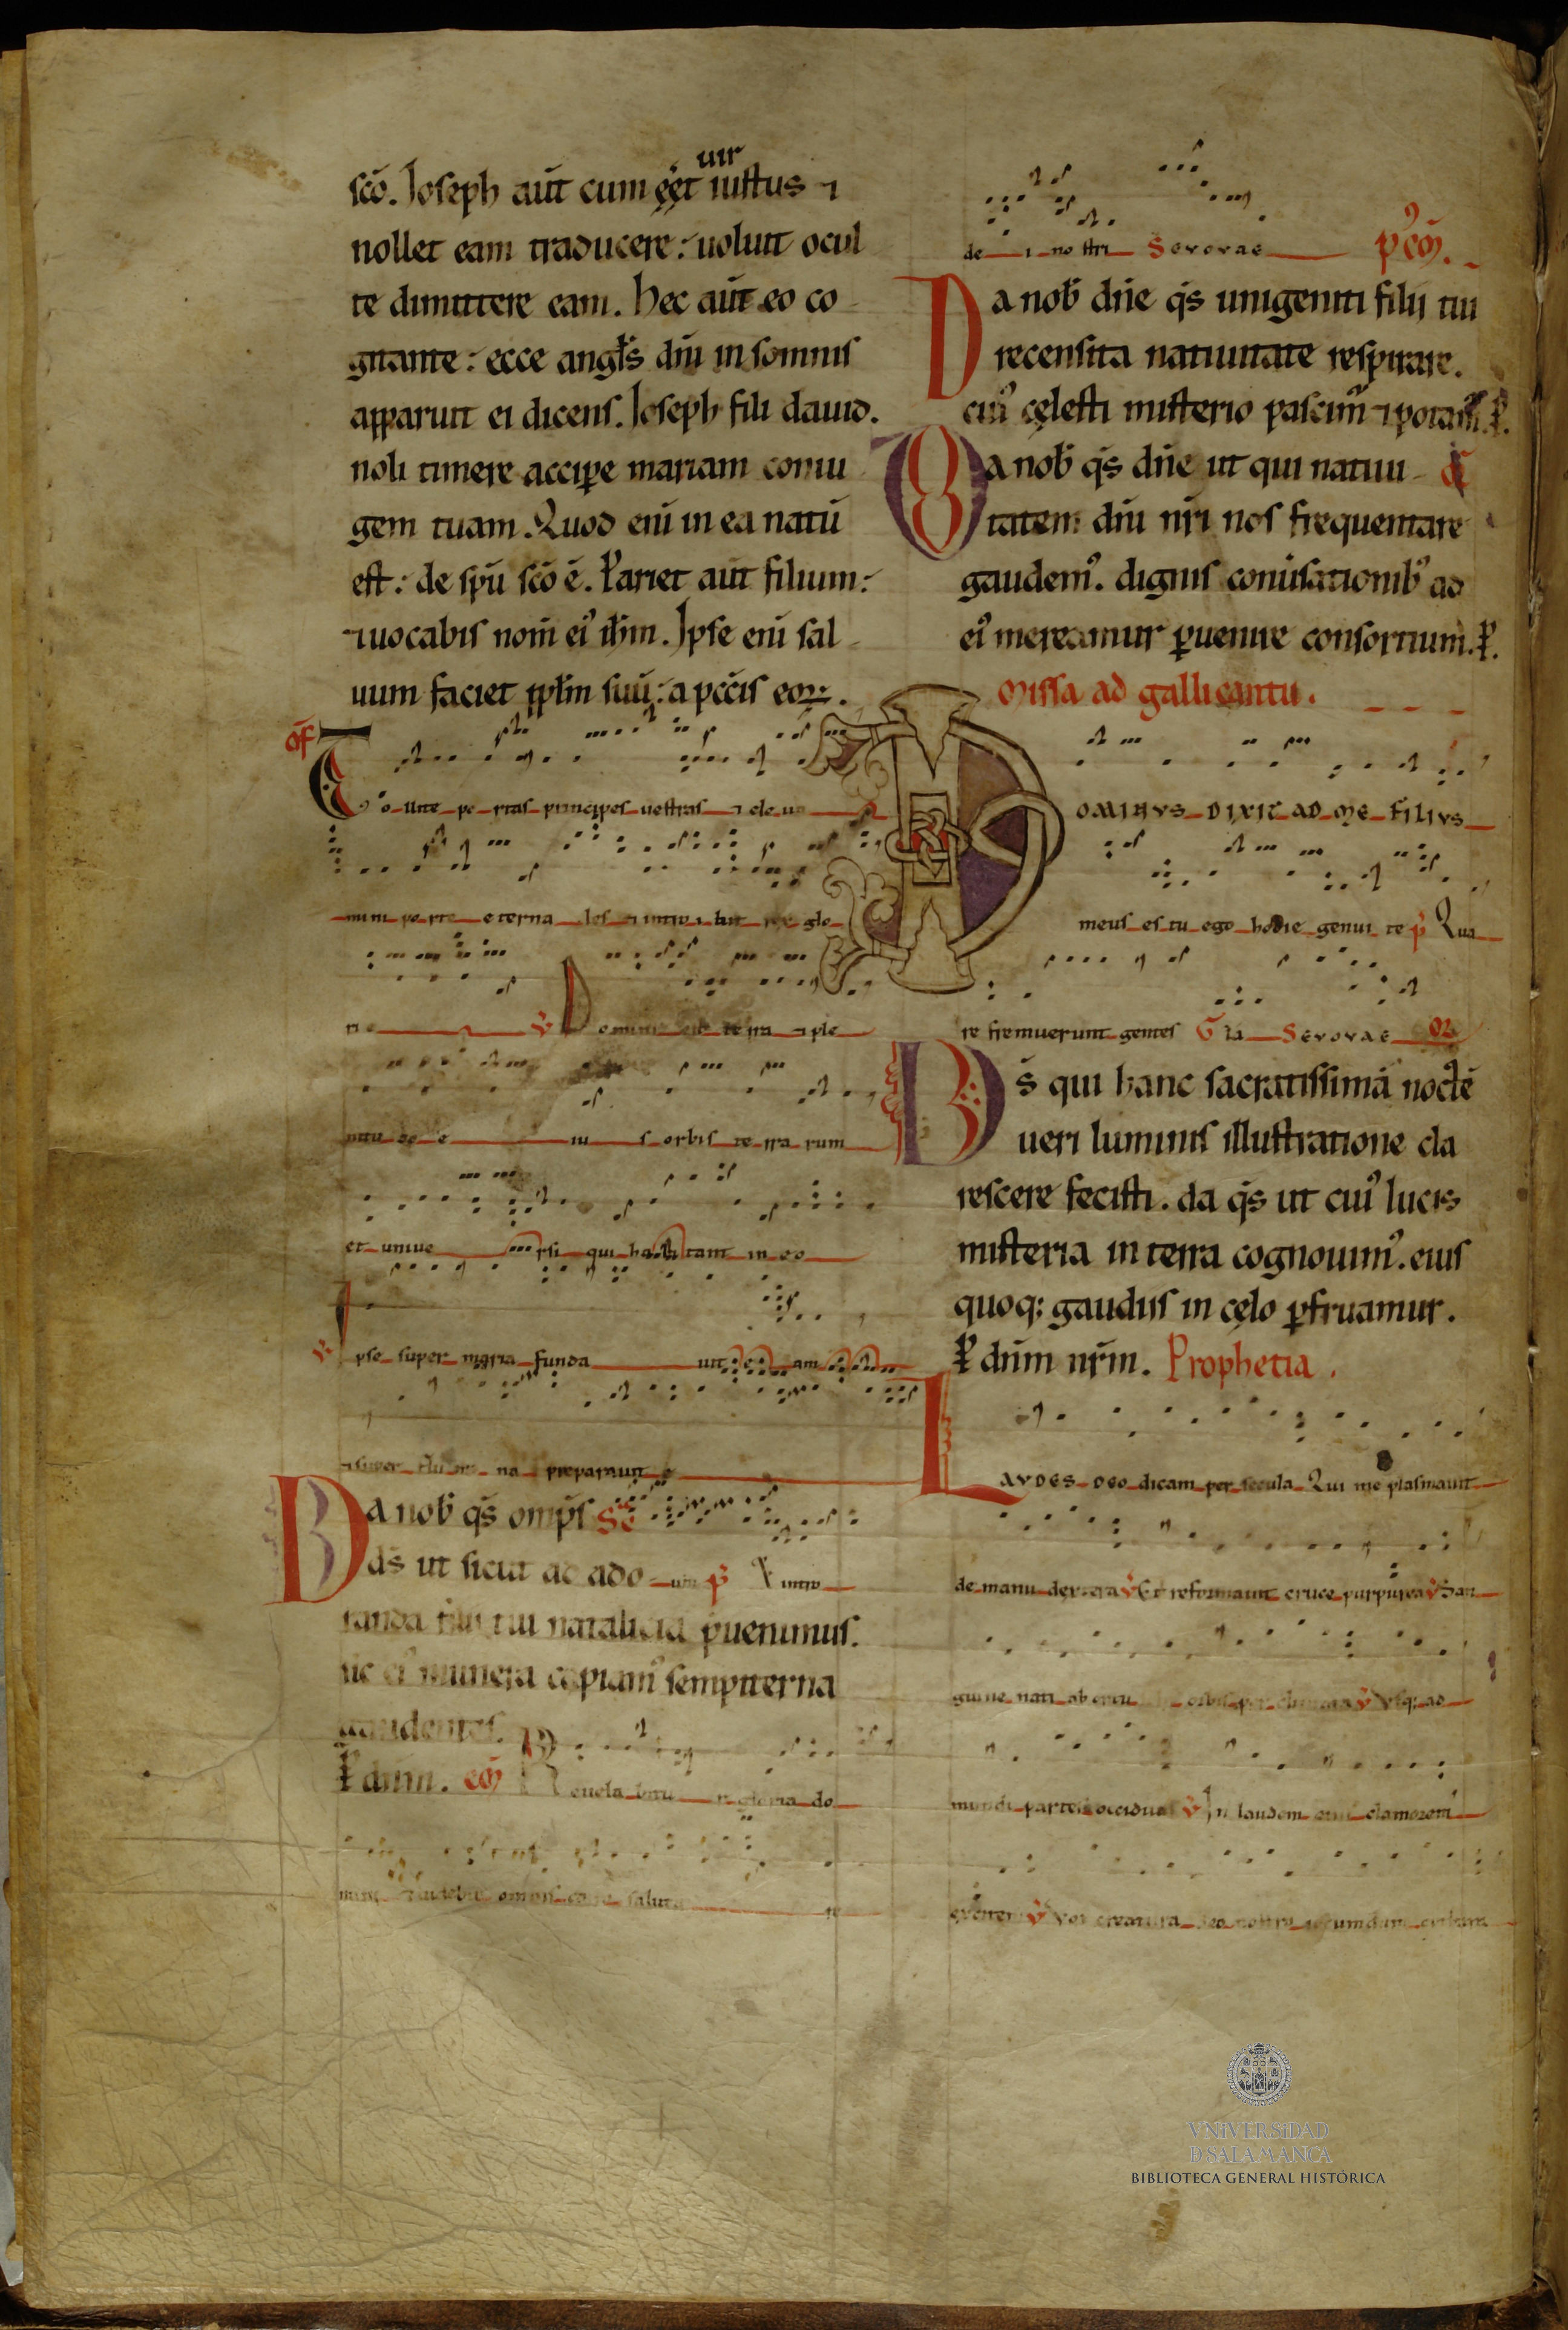 uir
sc̄o. Joseph aūt cum eēt iustus ⁊
nollet eam traducere: uoluit ocul
te dimittere eam. Hec aūt eo co
gitante: ecce angl̄s dn̄i in somnis
apparuit ei dicens. Joseph fili dauid.
noli timere accipe mariam coniu
gem tuam. Quod eni̅ in ea natū
est: de spū sc̄o ē. Pariet aūt filium:
⁊ uocabis nom̄ ei᾽ ih̄m. Ipse eni̅ sal
uum faciet pplm̄ suū: a pccīs eoꝝ.
of
Tollite portas principes uestras ⁊ eleua
mini porte eternales ⁊ introibit rex glo
rie ℣ Domini est terra ⁊ ple
nitudo eius orbis terrarum
et uniuersi qui habitant in eo
℣ Ipse super maria fundauit eam
⁊ super flumina preparauit e
Da nob̄ qs̄ omp̄s
ds̄ ut sicut ad ado
randa filii tui natalicia p̄uenimus.
sic ei᾽ munera capiam᾽ sempiterna
gaudentes.
P̱ dn̄m. cō Reuelabitur gloria do
mini ⁊ uidebit omnis caro saluta re
dei nostri Seuouae pꝰcōm̄.
Da nob̄ dn̄e qs̄ unigeniti filii tui
recensita natiuitate respirare.
cui᾽ cęlesti misterio pascim᾽ ⁊ potam᾽. P̱.
Da nob̄ qs̄ dn̄e ut qui natiui
tatem dn̄i nr̄i nos frequentare
gaudem᾽. dignis conūsationib᾽ ad
ei᾽ mereamur ꝑuenire consortium. P̱.
Missa ad galli cantu.
DOMINVS DIXIT AD ME FILIVS
meus es tu ego hodie genui te p̄ Qua
re fremuerunt gentes Ḡla Seuouae OR
Ds̄ qui hanc sacratissimā noctē
ueri luminis illustratione cla
rescere fecisti. da qs̄ ut cui᾽ lucis
misteria in terra cognouim᾽. eius
quoq: gaudiis in cęlo ꝑfruamur.
P̱ dn̄m nr̄m. Prophetia.
LAVDES DEO dicam per secula Qui me plasmauit
de manu dextera ℣ Et reformauit cruce purpurea ℣ San
guine nati ℣ Vsq: ad
mundi partes occiduas ℣ In laudem clamorem
℣ Vox creatura
VNiVERSiDAD
D SALAMANCA
BIBLIOTECA GENERAL HISTÓRICA